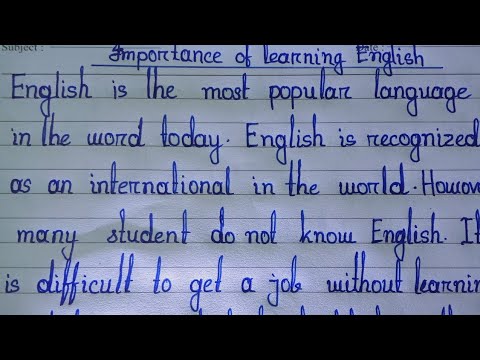 Subject :
Date :
Importance of learning English
English is the most popular language
in the word today. English is recognized
as an international in the world. Howeve
many student do not know English. It
is difficult to get a job without learnin